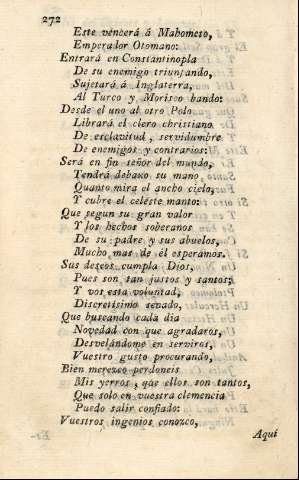 272
Este vencerá á Mahometo,
Emperador Otomano:
Entrará en Constantinopla
De su enemigo triunfando,
Sujetará á Inglaterra,
Al Turco y Morisco bando:
Desde el uno al otro Polo
Librará el clero christiano
De esclavitud, servidumbre
De enemigos y contrarios:
Será en fin señor del mundo,
Tendrá debaxo su mano
Quanto mira el ancho cielo,
Y cubre el celeste manto:
Que segun su gran valor
Y los hechos soberanos
De su padre y sus abuelos,
Mucho mas de él esperamos.
Sus deseos cumpla Dios,
Pues son tan justos y santos;
Y vos esta voluntad,
Discretísimo senado,
Que buscando cada dia
Novedad con que agradaros,
Desvelándome en serviros,
Vuestro gusto procurando,
Bien merezco perdoneis
Mis yerros, que ellos son tantos,
Que solo en vuestra clemencia
Puedo salir confiado:
Vuestros ingenios conozco,
Aquí